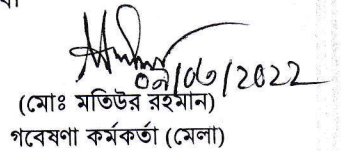 বা
০৯/০৬/2022
(মোঃ মতিউর রহমান)
গবেষণা কর্মকর্তা (মেলা)